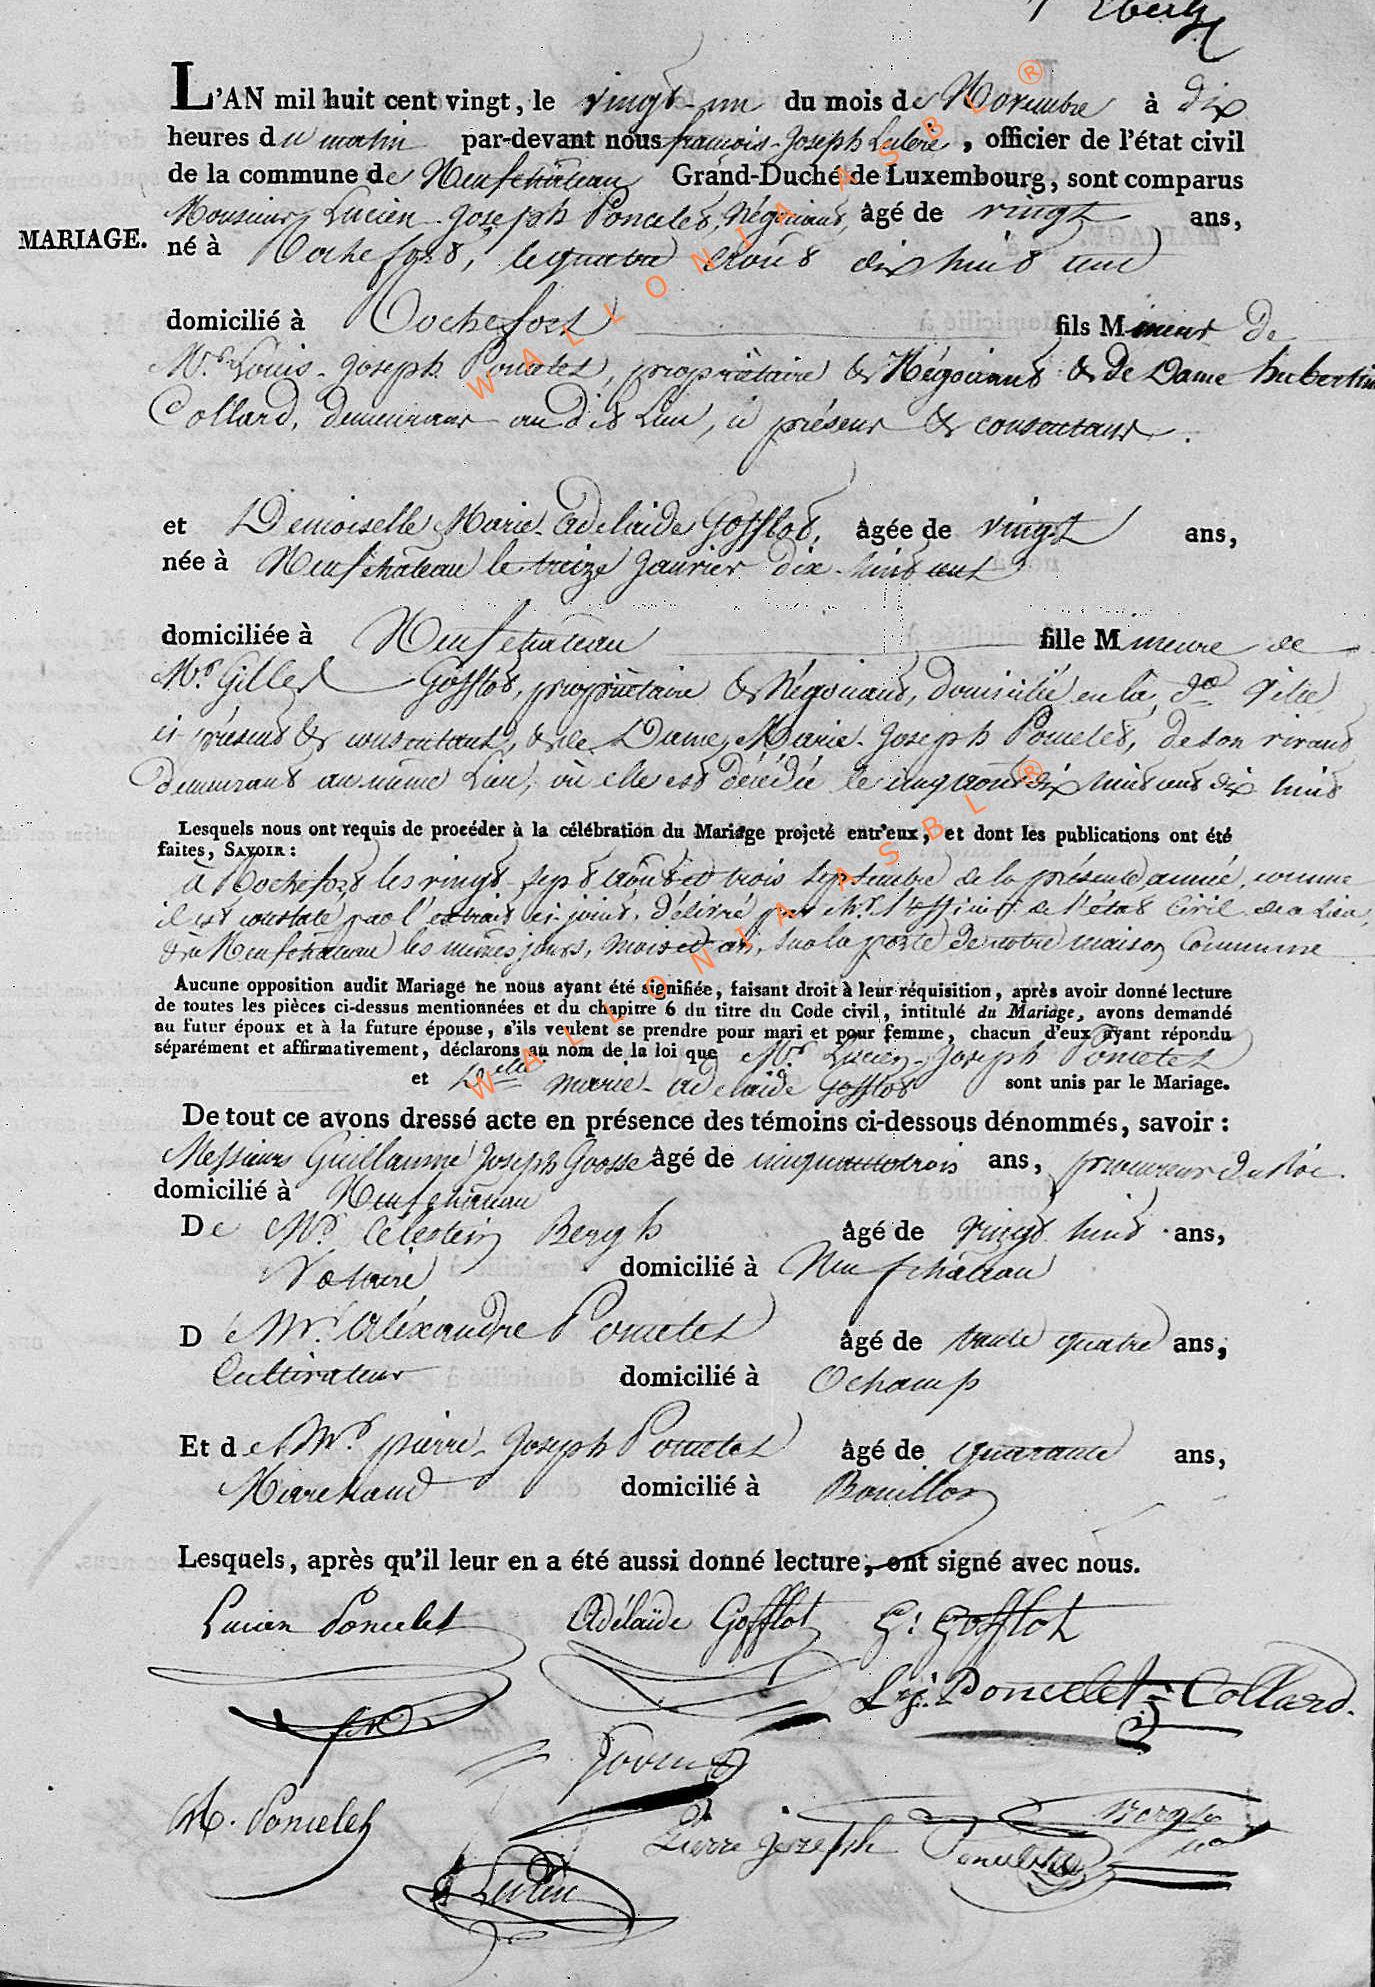 L'AN mil huit cent vingt, le vingt-un du mois de Novembre à dix
heures du matin par-devant nous françois-Joseph, officier de l'état civil
de la commune de Neufchâteau Grand-Duché de Luxembourg, sont comparus
Monsieur Lucien-Joseph Poncelet, Négociant, âgé de vingt ans,
MARIAGE.
né à Rochefort, le quatre août dix huit cent
domicilié à Rochefort fils Mineur de
Mr. Louis-Joseph Poncelet, propriétaire & Négociant & de Dame hubertine
Collard, demeurant au dit Lieu, ici présent & consentant.
et Demoiselle Marie-Adelaide Gofflot, âgée de vingt ans,
née à Neufchâteau le treize Janvier dix-huit cent
domiciliée à Neufchateau fille Mineure de
Mr. Gilles Gofflot, propriètaire & Négociant, domicilié en la dte Ville
ci présent & consentant, & de Dame Marie-Joseph Poncelet, de son vivant
demeurant au même Lieu, où elle est décédée le cinq août dix huit cent dix huit
Lesquels nous ont requis de procéder à la célébration du Mariage projeté entr'eux, et dont les publications ont été
faites, SAVOIR :
à Rochefort les vingt-sept août et trois septembre de la présente année, comme
il est constaté par l'extrait ci-joint, délivré par Mr. l'officier de l'état Civil de ce Lieu,
& à Neufchâteau les mêmes jours, mois et an, sur la porte de notre maison Commune
Aucune opposition audit Mariage ne nous ayant été signifiée, faisant droit à leur réquisition, après avoir donné lecture
de toutes les pièces ci-dessus mentionnées et du chapitre 6 du titre du Code civil, intitulé du Mariage, avons demandé
au futur époux et à la future épouse, s'ils veulent se prendre pour mari et pour femme, chacun d'eux ayant répondu
séparément et affirmativement, déclarons au nom de la loi que Mr. Lucien-Joseph Poncelet
et Delle marie-adelaide Gofflot sont unis par le Mariage.
De tout ce avons dressé acte en présence des témoins ci-dessous dénommés, savoir :
Messieurs Guillaume Joseph Goosse âgé de cinquante trois ans, procureur du Roi
domicilié à Neufchâteau
De Mr. Célestin Bergh âgé de vingt huit ans,
Notaire domicilié à Neufchâteau
D Mr. Aléxandre Poncelet âgé de trente quatre ans,
Cultivateur domicilié à Ochamp
Et de Mr. pierre-Joseph Poncelet âgé de quarante ans,
Marchand domicilié à Bouillon
Lesquels, après qu'il leur en a été aussi donné lecture, ont signé avec nous.
Lucien Poncelet Adélaïde Gofflot G: Gofflot
L.j. Poncelet-Collard.
Goosse
A. Poncelet Pierre Jozeph Poncelet Bergh
WALLONIA ASBL ®
WALLONIA ASBL ®